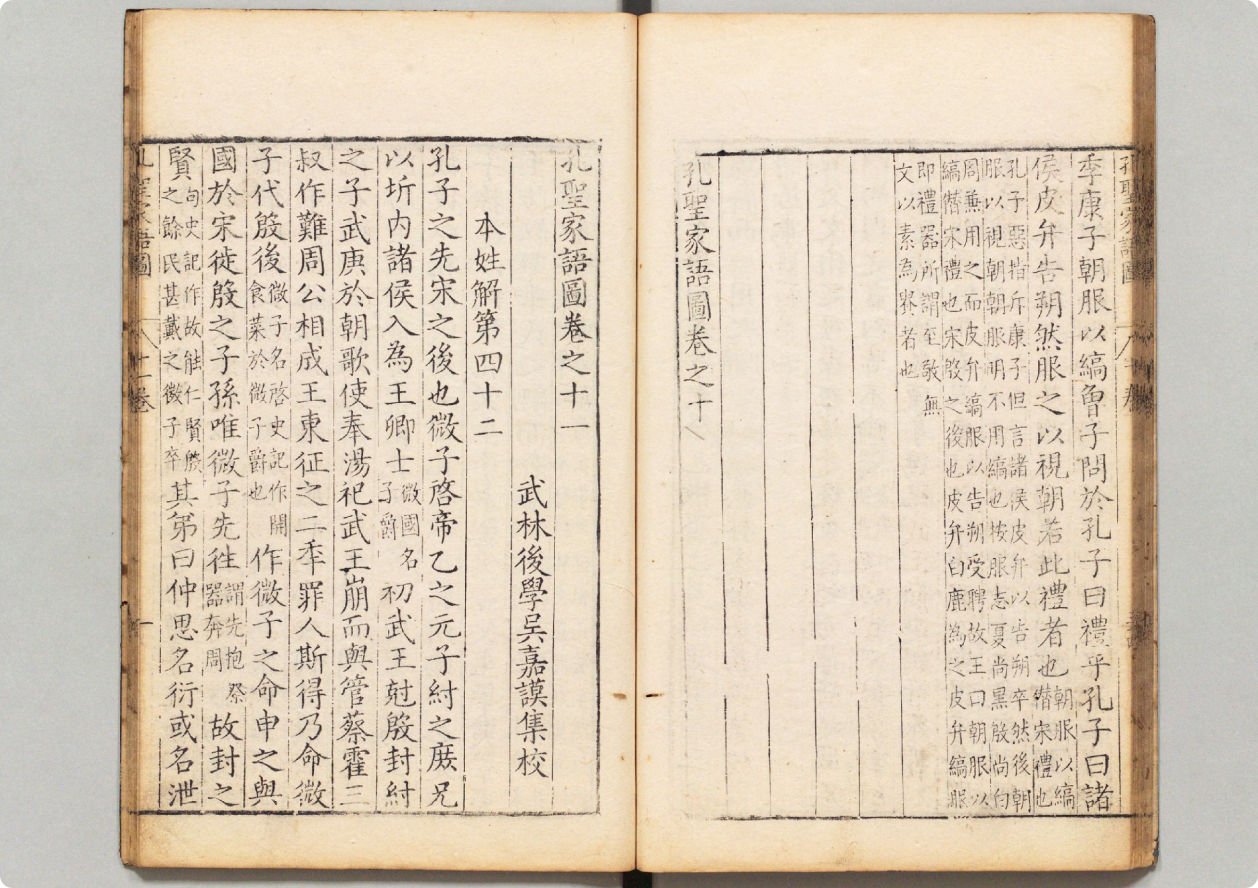 孔聖家語圖
季康子朝服以縞曾子問於孔子曰禮乎孔子曰諸
侯皮弁告朔然服之以視朝若此禮者也朝服以縞僭宋禮也
孔子惡指斥康子但言諸侯皮弁以告朔卒然後朝
服以視朝朝服明不用縞也按服志夏尚黑殷尚白
周兼用之而皮弁縞服以告朔受聘故王曰朝服以
縞僭宋禮也宋殷之後也皮弁白鹿為之皮弁縞服
即禮器所謂至敬無
文以素為貴者也
孔聖家語圖卷之十
孔聖家語圖卷之十一
武林後學吳嘉謨集校
本姓解第四十二
孔子之先宋之後也微子啓帝乙之元子紂之庶兄
以圻內諸侯入為王卿士微國名子爵初武王尅殷封紂
之子武庚於朝歌使奉湯祀武王崩而與管蔡霍三
叔作難周公相成王東征之二季罪人斯得乃命微
子代殷後微子名啓史記作開食菜於微子爵也作微子之命申之與
國於宋徙殷之子孫唯微子先徃謂先抱祭器奔周故封之
賢句史記作故能仁賢殷之餘民甚戴之微子卒其弟曰仲思名衍或名泄
孔聖家語圖
十一卷
一